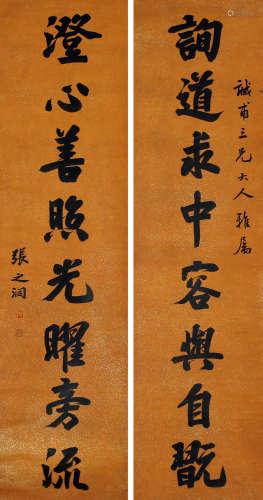 詢道求中容與自翫
誠甫三兄大人雅屬
澄心善照光曜旁流
張之洞